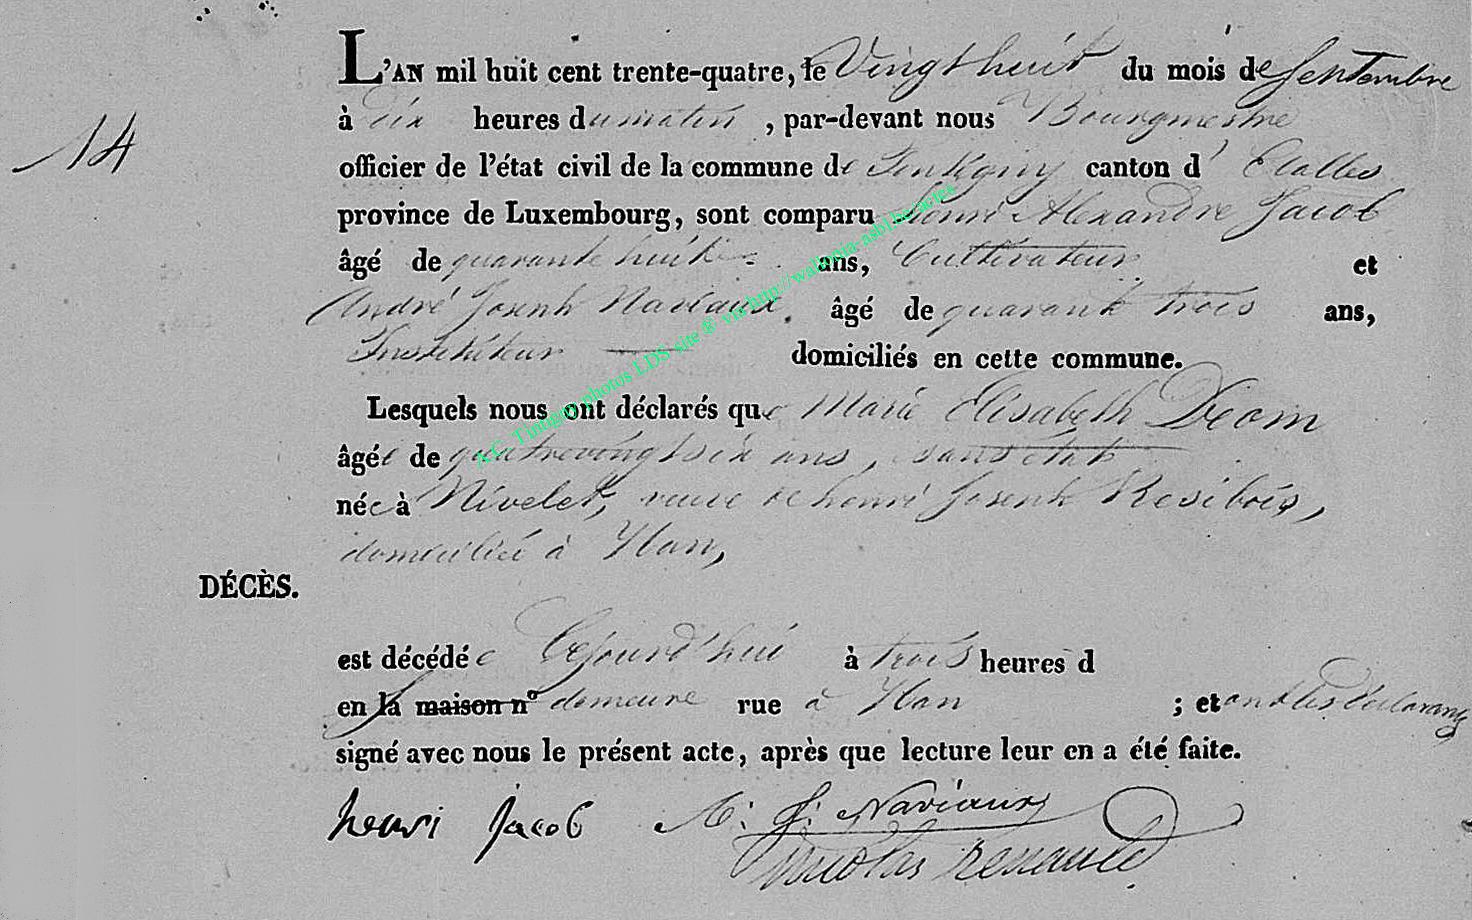 L'AN mil huit cent trente-quatre, le Vingt huit du mois de Septembre
14
à dix heures du matin, par-devant nous Bourgmestre
officier de l'état civil de la commune de Tintigny canton d'Etalles
province de Luxembourg, sont comparu henri Alexandre Jacob
âgé de quarante huit ans, Cultivateur et
André Joseph Naviaux. âgé de quarante trois ans,
Instituteur domiciliés en cette commune.
Lesquels nous ont déclarés que Marie Elisabeth Deom
âgée de quatrevingt six ans, sans état
née à Nivelet, veuve de henri Joseph Resibois,
domiciliée à Han,
DÉCÈS.
est décédée Cejourd'hui à trois heures d
en la maison nº demeure rue à Han ; et ont les déclarants
signé avec nous le présent acte, après que lecture leur en a été faite.
henri Jacob A. J. Naviaux
Nicolas Renauld
A.C. Tintigny photos LDS site ® vm http://wallonia-asbl.be/actes